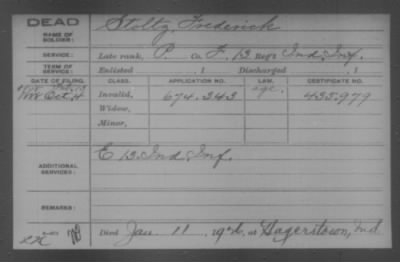 DEAD
Stoltz, Frederick
NAME OF SOLDIER:
SERVICE: Late rank, P. Co. F, 13 Reg't Ind. Inf.
TERM OF SERVICE: Enlisted , 1 Discharged , 1
DATE OF FILING. CLASS. APPLICATION NO. LAW. CERTIFICATE NO.
Oct. 4 Invalid, 674.343 age. 435.979
Widow,
Minor,
ADDITIONAL SERVICES: E 13 Ind. Inf.
REMARKS:
Died Jan. 11, 1926, at Hagerstown, Ind.